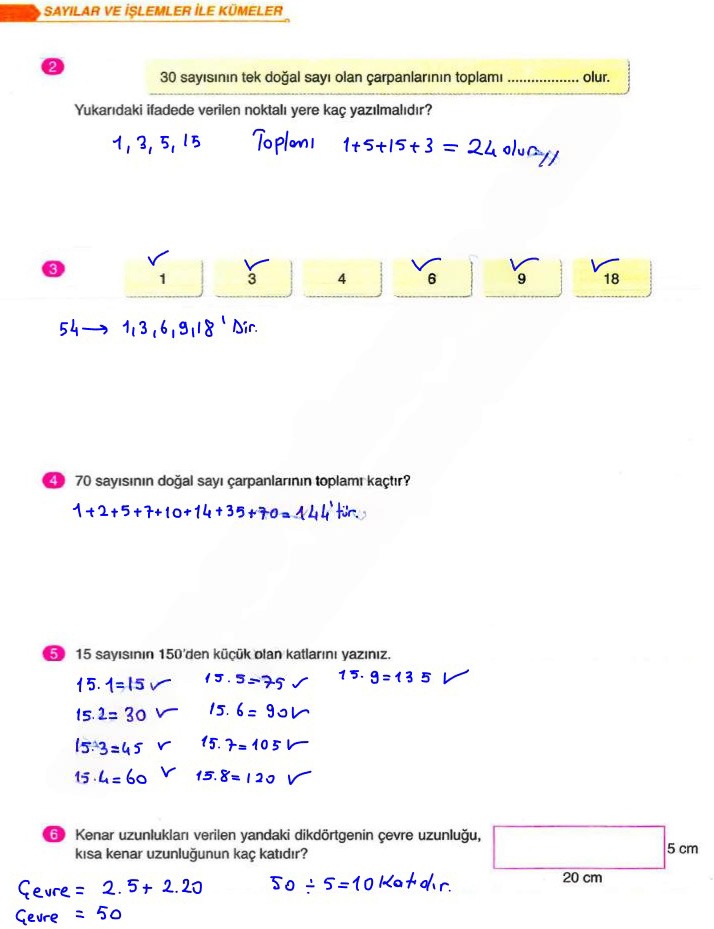 SAYILAR VE İŞLEMLER İLE KÜMELER
2
30 sayısının tek doğal sayı olan çarpanlarının toplamı .................. olur.
Yukarıdaki ifadede verilen noktalı yere kaç yazılmalıdır?
1, 3, 5, 15 Toplamı 1+5+15+3 = 24 olur//
3
1 3 4 6 9 18
54→ 1,3,6,9,18' Dir.
4 70 sayısının doğal sayı çarpanlarının toplamı kaçtır?
1+2+5+7+10+14+35+70=144'tür.
5 15 sayısının 150'den küçük olan katlarını yazınız.
15.1=15✓ 15.5=75✓ 15.9=135✓
15.2=30✓ 15.6=90✓
15.3=45✓ 15.7=105✓
15.4=60✓ 15.8=120✓
6 Kenar uzunlukları verilen yandaki dikdörtgenin çevre uzunluğu,
kısa kenar uzunluğunun kaç katıdır?
5 cm
20 cm
Çevre = 2.5+ 2.20 50 ÷ 5=10 Katıdır.
Çevre = 50